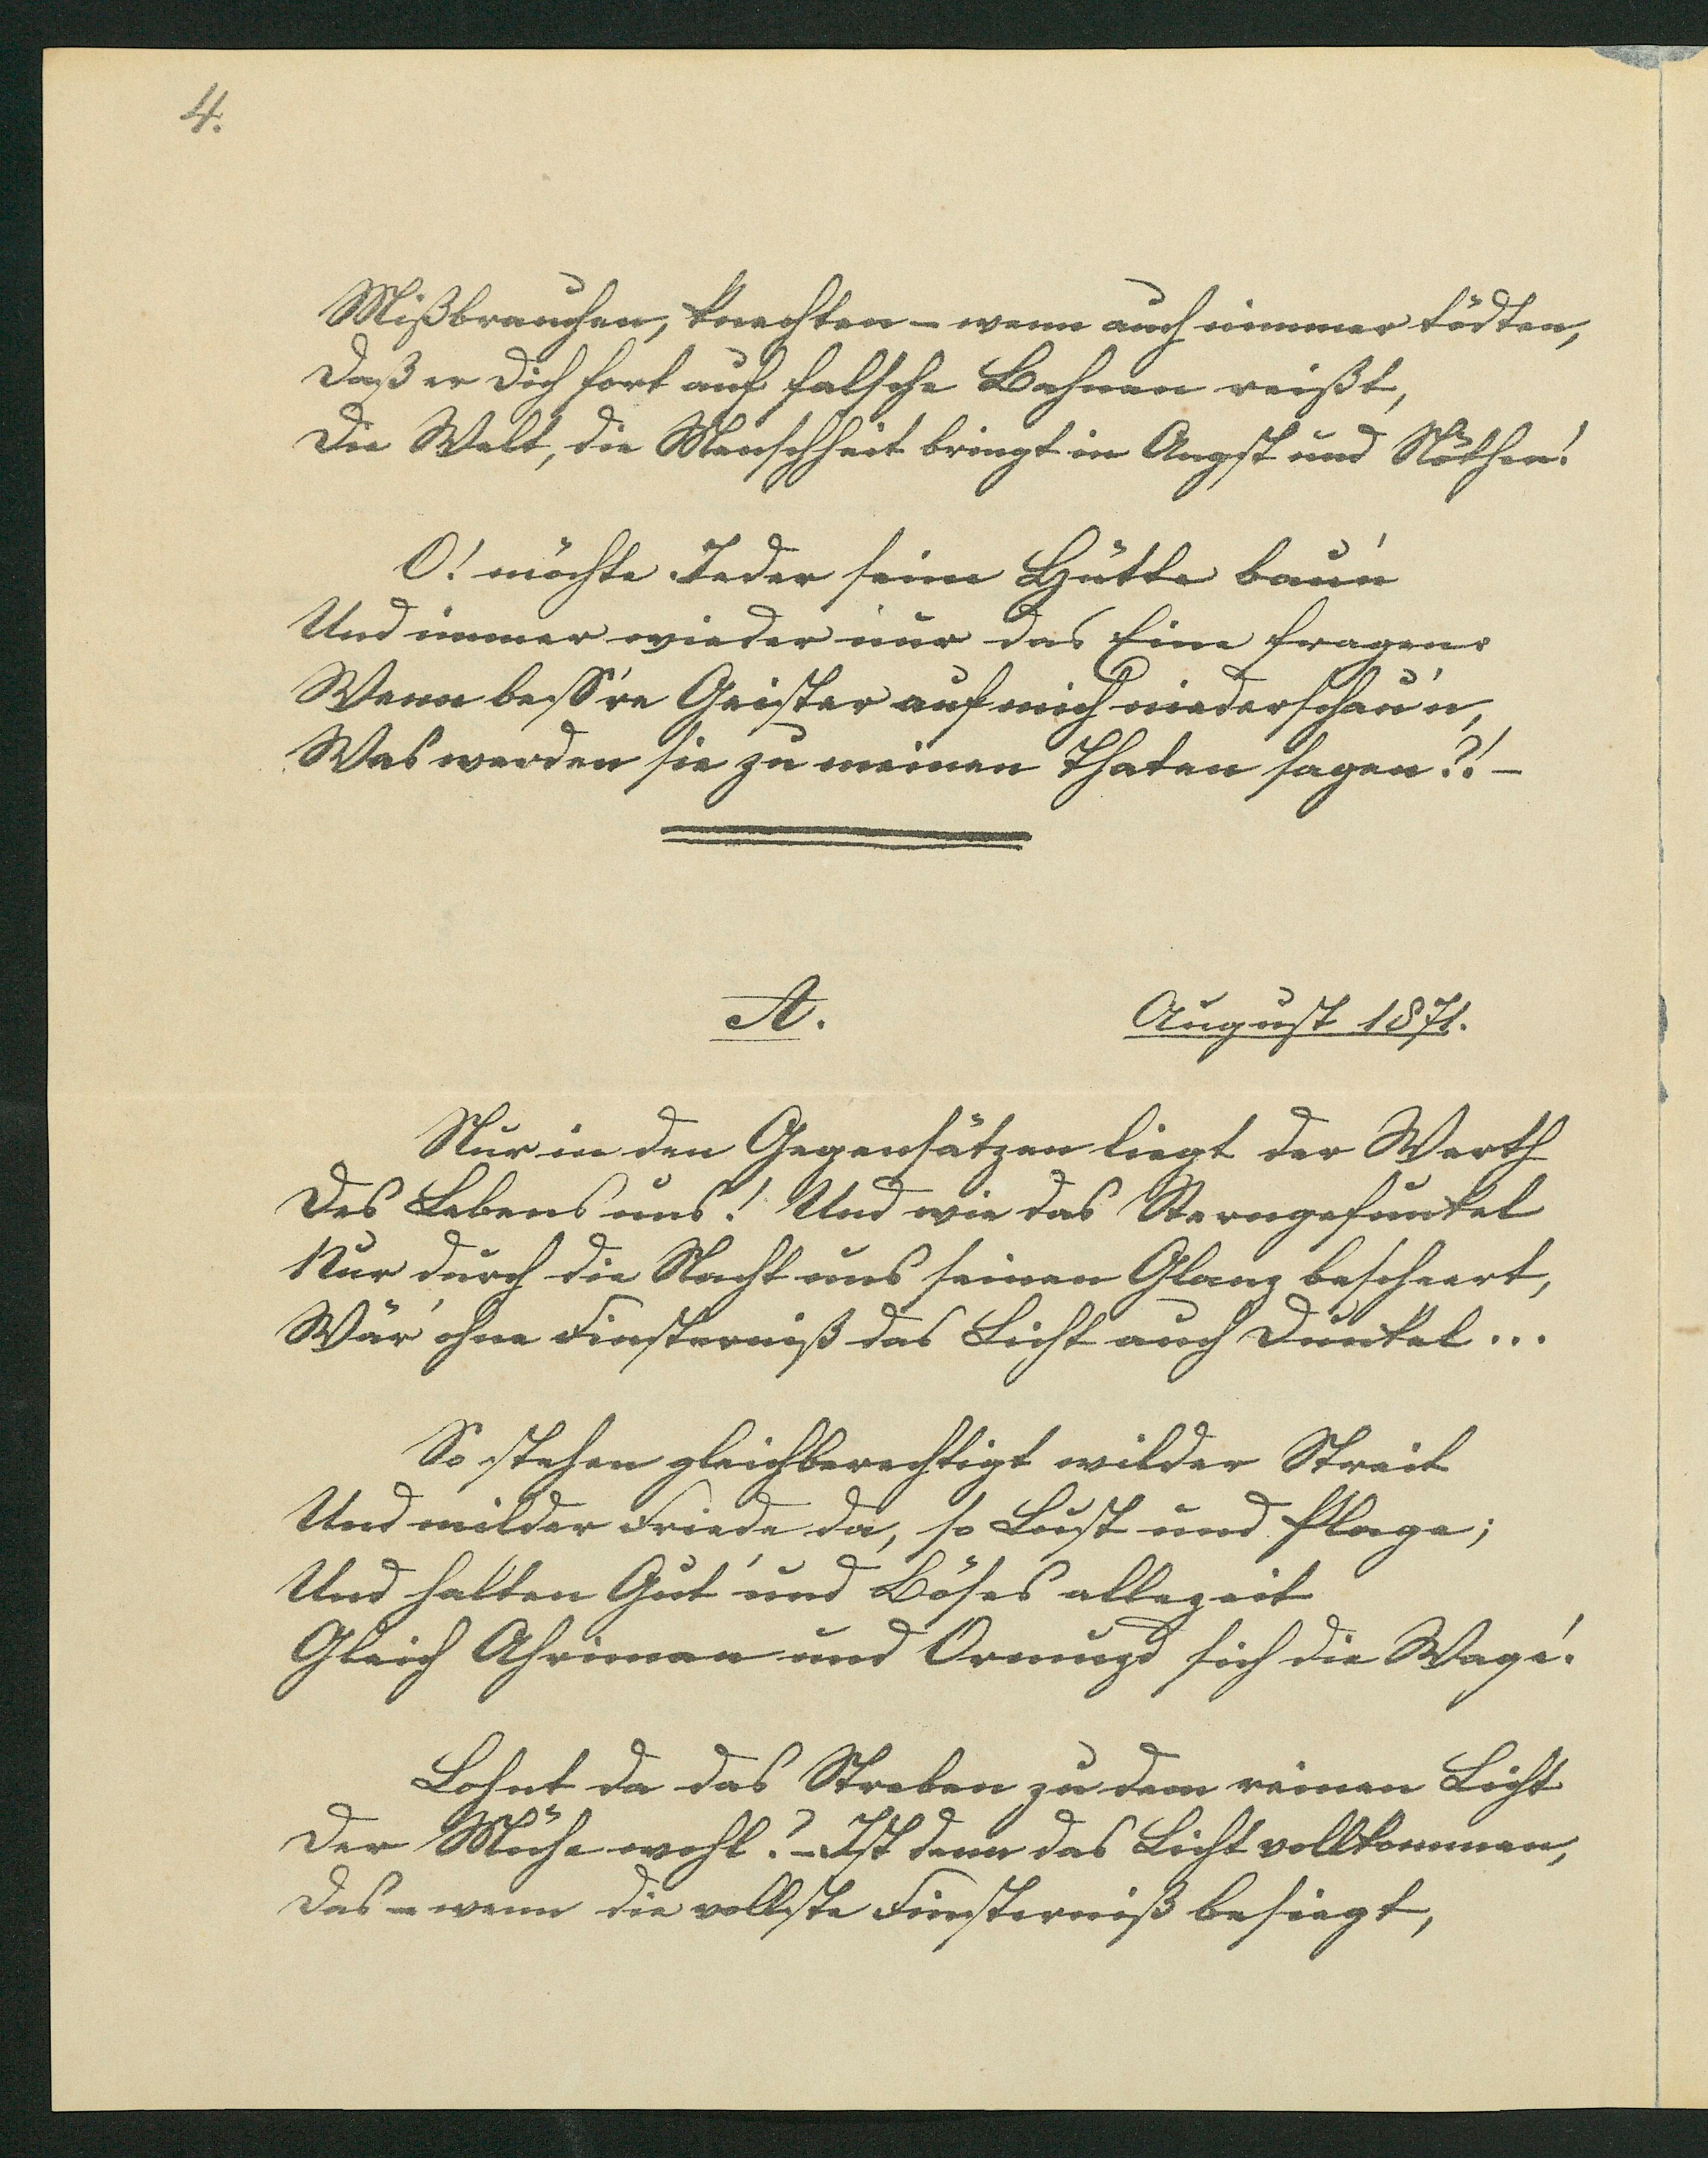 4.
Mißbrauchen, knechten – wenn auch nimmer tödten,
Daß er Dich fort auf falsche Bahnen reißt,
Die Welt, die Menschheit bringt in Angst und Nöthen!
O! möchte Jeder seine Hütte bau'n
Und immer wieder nur das Eine fragen:
Wenn bess're Geister auf mich niederschau'n,
Was werden sie zu meinen Thaten sagen?! –
A. August 1871.
Nur in den Gegensätzen liegt der Werth
Des Lebens uns! Und wie das Sterngefunkel
Nur durch die Nacht uns seinen Glanz bescheert,
Wär' ohne Finsterniß das Licht auch Dunkel...
So stehen gleichberechtigt wilder Streit
Und milder Friede da, so Lust und Plage;
Und halten Gut' und Böses allezeit
Gleich Ahriman und Ormuzd sich die Wage!
Lohnt da das Streben zu dem reinen Licht
Der Mühe wohl? – Ist denn das Licht vollkommen,
Das – wenn die vollste Finsterniß besiegt,